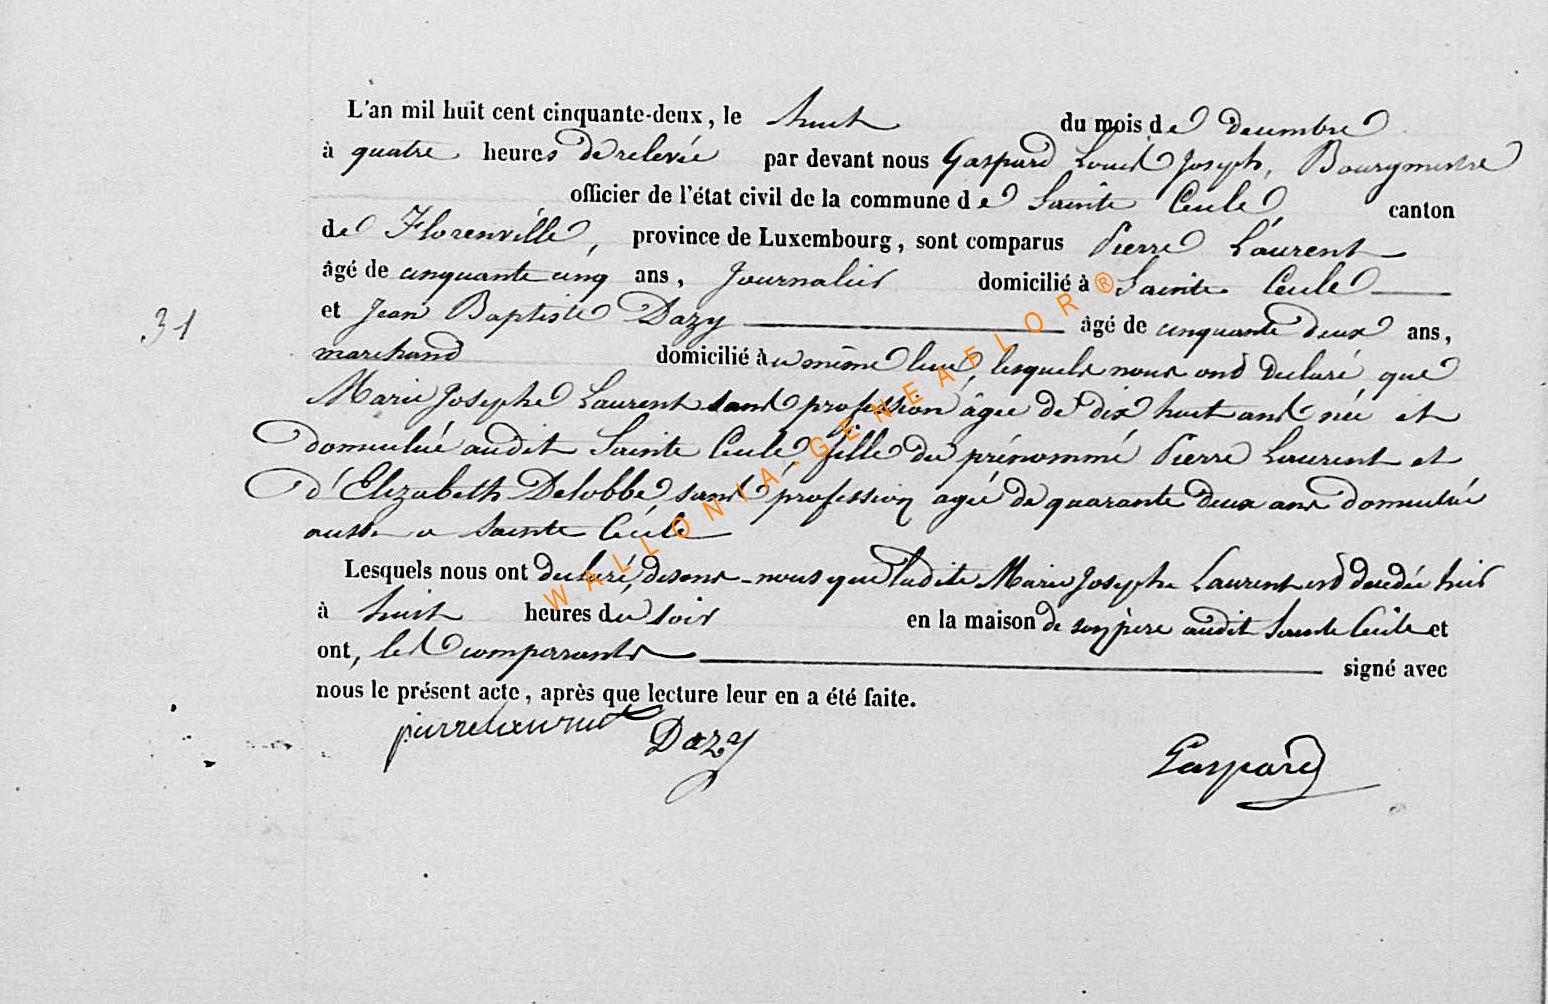 L'an mil huit cent cinquante-deux, le huit du mois de decembre
à quatre heures de relevée par devant nous Gaspard Louis Joseph, Bourgmestre
officier de l'état civil de la commune de Sainte Cecile, canton
de Florenville, province de Luxembourg, sont comparus Pierre Laurent
âgé de cinquante cinq ans, Journalier domicilié à Sainte Cecile
et Jean Baptiste Dazy âgé de cinquante deux ans,
31
marchand domicilié au même lieu, lesquels nous ont declaré que
Marie Josephe Laurent sans profession âgée de dix huit ans née et
domiciliée audit Sainte Cecile, fille du prénommé Pierre Laurent et
d'Elizabeth Delobbe, sans profession agée de quarante deux ans domiciliée
aussi a Sainte Cécile
Lesquels nous ont declaré, disons-nous que ladite Marie Josephe Laurent est decedée hier
à huit heures du soir en la maison de son père audit Sainte Cécile et
ont, les comparants signé avec
nous le présent acte, après que lecture leur en a été faite.
pierre laurent Dazy Gaspard
WALLONIA-GENEAFLOR®